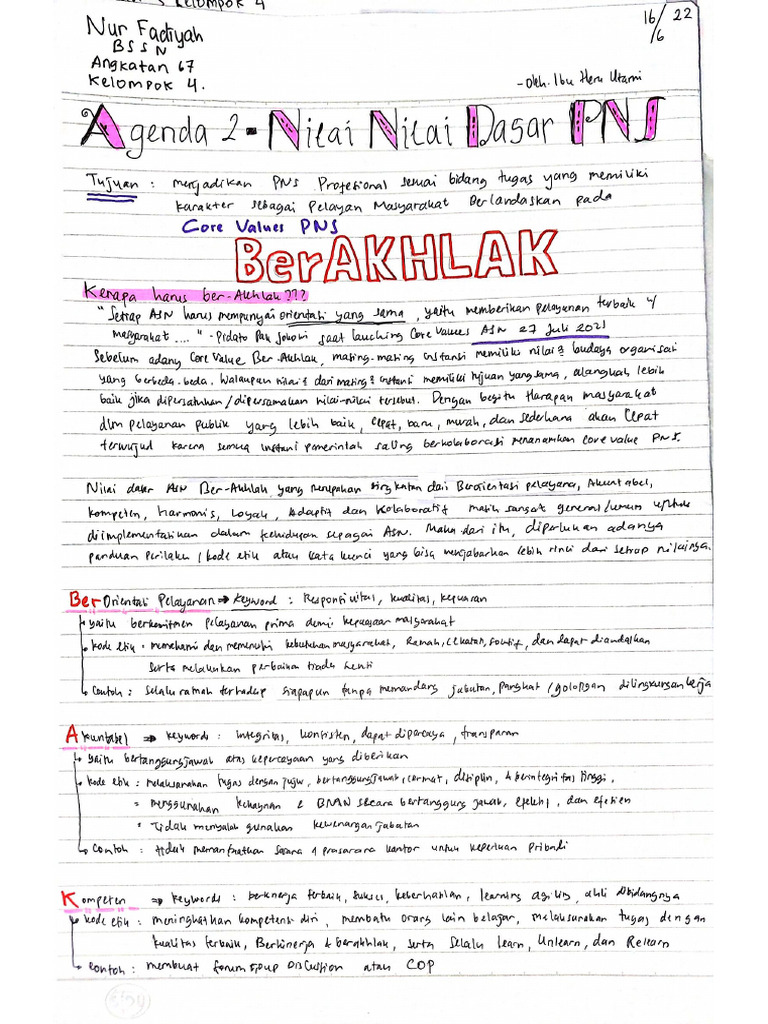 Kelompok 4
Nur Fadiyah
BSSN
Angkatan 67
Kelompok 4.
16/6 22
- oleh. Ibu Heru Utami
Agenda 2 - Nilai Nilai Dasar PNS
Tujuan : menjadikan PNS Profesional sesuai bidang tugas yang memiliki
karakter sebagai Pelayan Masyarakat Berlandaskan pada
Core Values PNS
BerAKHLAK
Kenapa harus ber-Akhlak???
"Setiap ASN harus mempunyai orientasi yang sama, yaitu memberikan pelayanan terbaik u/
masyarakat ...." - Pidato Pak Jokowi saat lauching Core Values ASN 27 Juli 2021
Sebelum adanya Core Value Ber-Akhlak, masing-masing instansi memiliki nilai2 budaya organisasi
yang berbeda-beda. Walaupun nilai2 dari masing2 instansi memiliki tujuan yang sama, alangkah lebih
baik jika dipersatukan/dipersamakan nilai-nilai tersebut. Dengan begitu Harapan masyarakat
dlm pelayanan publik yang lebih baik, cepat, baru, murah, dan sederhana akan Cepat
terwujud karena semua instansi pemerintah saling berkolaborasi menanamkan core value PNS.
Nilai dasar ASN Ber-Akhlak yang merupakan singkatan dari Berorientasi pelayana, Akuntabel,
Kompeten, Harmonis, Loyal, Adaptif dan Kolaboratif masih sangat general/umum untuk
diimplementasikan dalam kehidupan sebagai ASN. Maka dari itu, diperlukan adanya
panduan perilaku / kode etik atau kata kunci yang bisa menjabarkan lebih rinci dari setiap nilainya.
Berorientasi Pelayanan → Keyword : Responsivitas, kualitas, kepuasan
yaitu berkomitmen pelayanan prima demi kepuasan masyarakat
kode etik = memahami dan memenuhi kebutuhan masyarakat, Ramah, Cekatan, Solutif, dan dapat diandalkan
serta melakukan perbaikan tiada henti
Contoh : selalu ramah terhadap siapapun tanpa memandang jabatan, pangkat/golongan dilingkungan kerja
Akuntabel → Keywords : Integritas, konsisten, dapat dipercaya, transparan
yaitu bertanggungjawab atas kepercayaan yang diberikan
kode etik : melaksanakan tugas dengan jujur, bertanggungjawab, cermat, disiplin, & berintegritas tinggi,
= menggunakan kekayaan & BMN secara bertanggung jawab, efektif, dan efisien
= Tidak menyalah gunakan kewenangan jabatan
Contoh : tidak memanfaatkan sarana & prasarana kantor untuk keperluan pribadi
Kompeten → Keywords : berkinerja terbaik, sukses, keberhasilan, learning agility, ahli dibidangnya
kode etik : meningkatkan kompetensi diri, membatu orang lain belajar, melaksanakan tugas dengan
kualitas terbaik, Berkinerja & berakhlak, serta selalu learn, Unlearn, dan Relearn
Contoh : membuat forum group Discustion atau COP